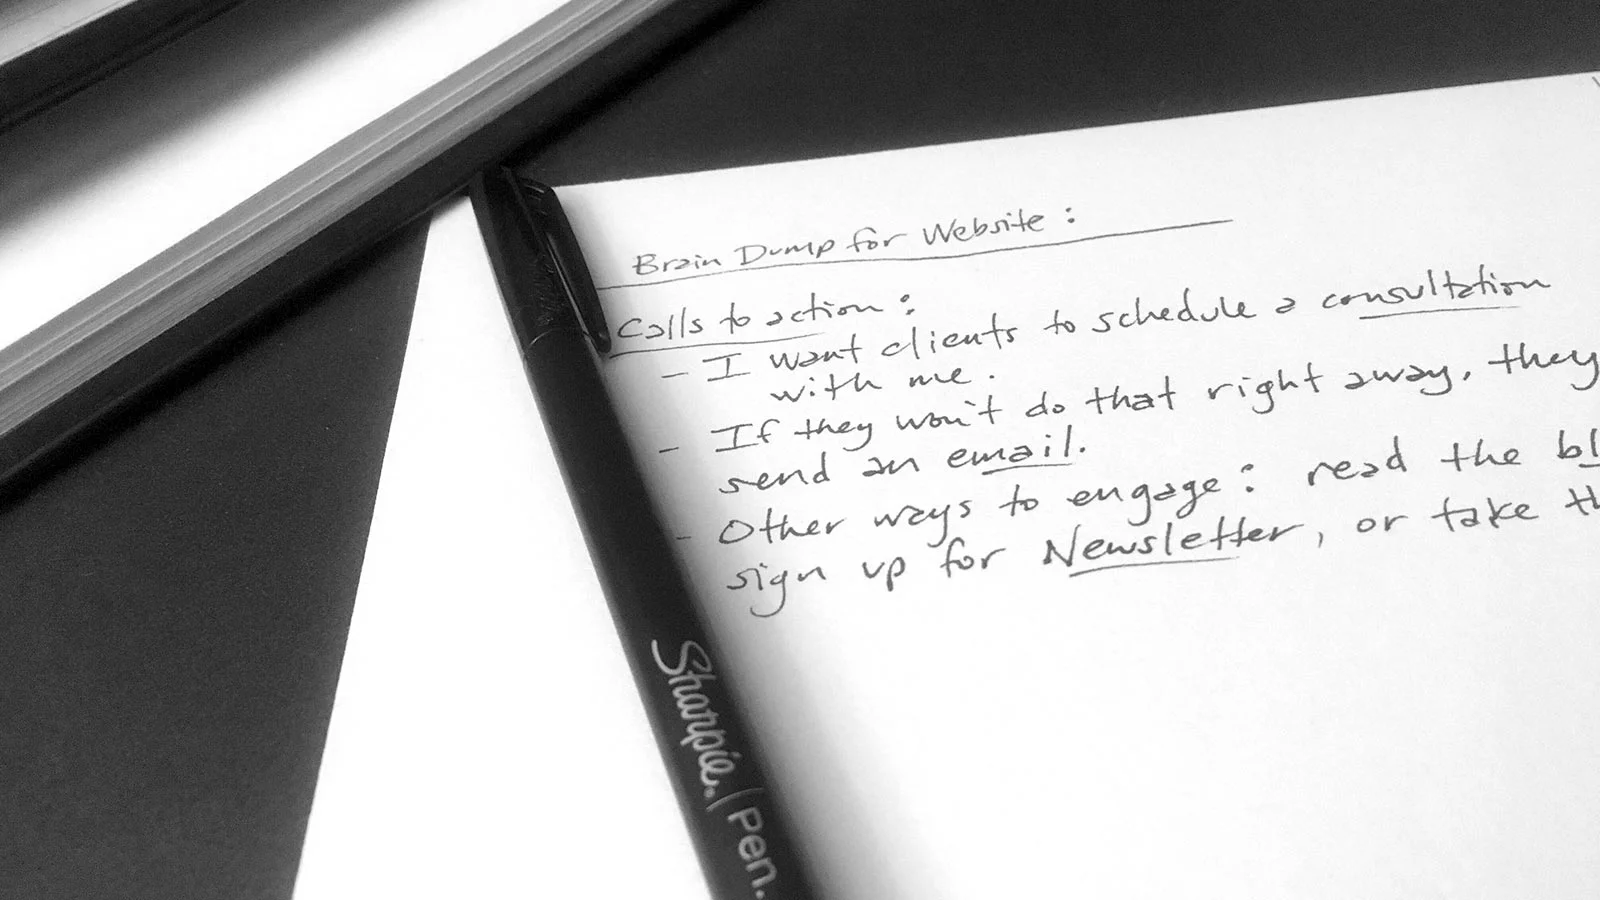 Brain Dump for Website:
Calls to action:
- I want clients to schedule a consultation
with me.
- If they won't do that right away, they
send an email.
- Other ways to engage: read the bl
sign up for Newsletter, or take th
Sharpie. | Pen.